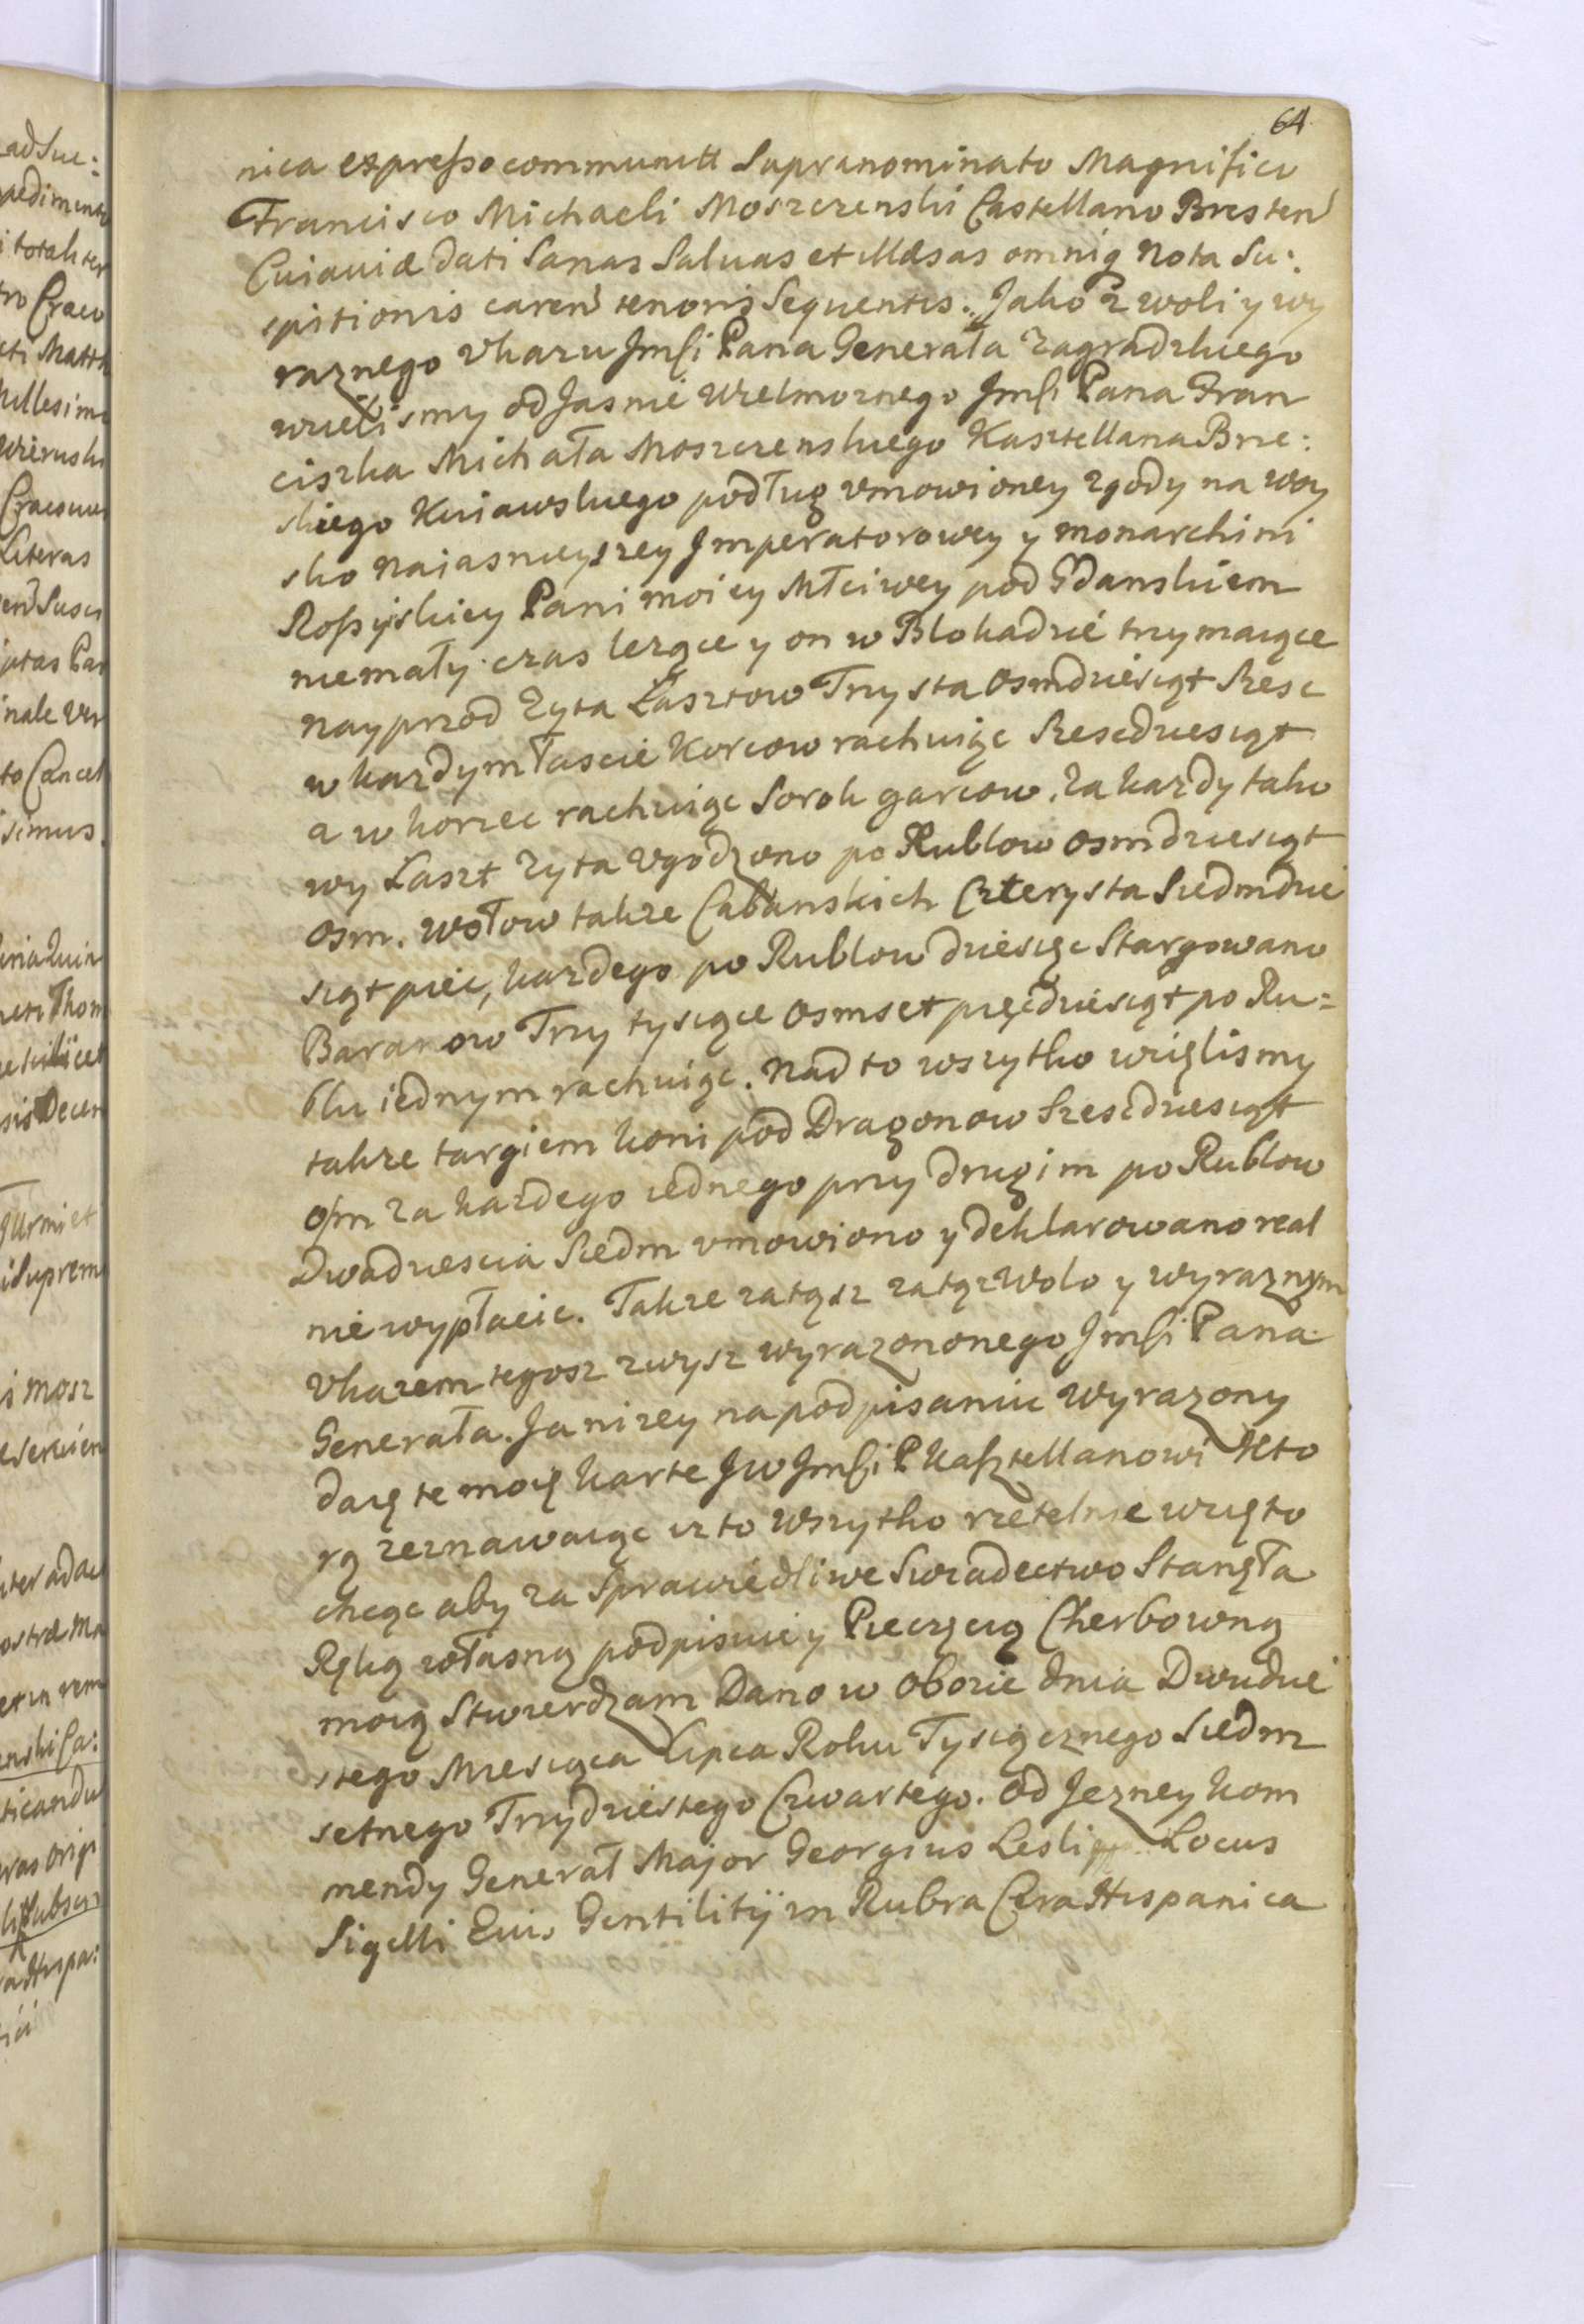 64
nica expresso communitt Supranominato Magnifico
Francisco Michaeli Moszczenski Castellano Bresten
Cuiaviæ dati Sanas Salvas et illæsas omniq nota Su:
spitionis caren tenoris Sequentis. Jako z woli y wy
raznego vkazu Jmści Pana Generała Zagradzkiego
wzieliśmy od Jasnie Wielmoznego Jmści Pana Fran
ciszka Michała Moszczenskiego Kasztellana Brze:
skiego Kuiawskiego podług vmowioney zgody na woy
sko naiasnieyszey Jmperatorowey y monarchini
Rossyiskiey Pani moiey Młciwey pod Gdanskiem
niemały czas lezące y on w Blokadzie trzymaiące
nayprzod Zyta Łasztow Trzysta osmdziesiąt Szesc
w kazdym łascie Korcow rachuiąc Szescdziesiąt
a w korzec rachuiąc Sorok garcow. Za kazdy tako
wy Łaszt Zyta Vgodzono po Rublow osmdziesiąt
osm. Wołow takze Cabanskich Czterysta Siedmdzie
siąt piec, kazdego po Rublow dziesięc Stargowano
Baranow Trzy tysiące osmset pięcdziesiąt po Ru=
blu iednym rachuiąc. Nad to wszytko wzięlismy
takze targiem koni pod Dragonow Szescdziesiąt
osm za kazdego iednego przy drugim po Rublow
Dwadziescia Siedm vmowiono y deklarowano real
nie wypłacic. Takze zatąsz zatąz Wolo y wyraznym
Vkazem tegosz zwysz wyrazononego Jmści Pana
Generała. Ja nizey na podpisaniu Wyrazony
daię te moię karte Jw Jmści P Kasztellanowi Kto
rą zeznawaiąc iz to Wszytko rzetelnie wzięto
chcąc aby za Sprawiedliwe Swiadectwo Stanęła
Ręką własną podpisuie y Pieczęcią Cherbowną
moią Stwierdzam Dano w obozie dnia Dwudzie
stego Miesiąca Lipca Roku Tysiącznego Siedm
setnego Trzydziestego Czwartego. Od Jezney kom
mendy Generał Major Georgius Lesli Locus
Sigilli Eius Gentilitij in Rubra Cera Hispanica